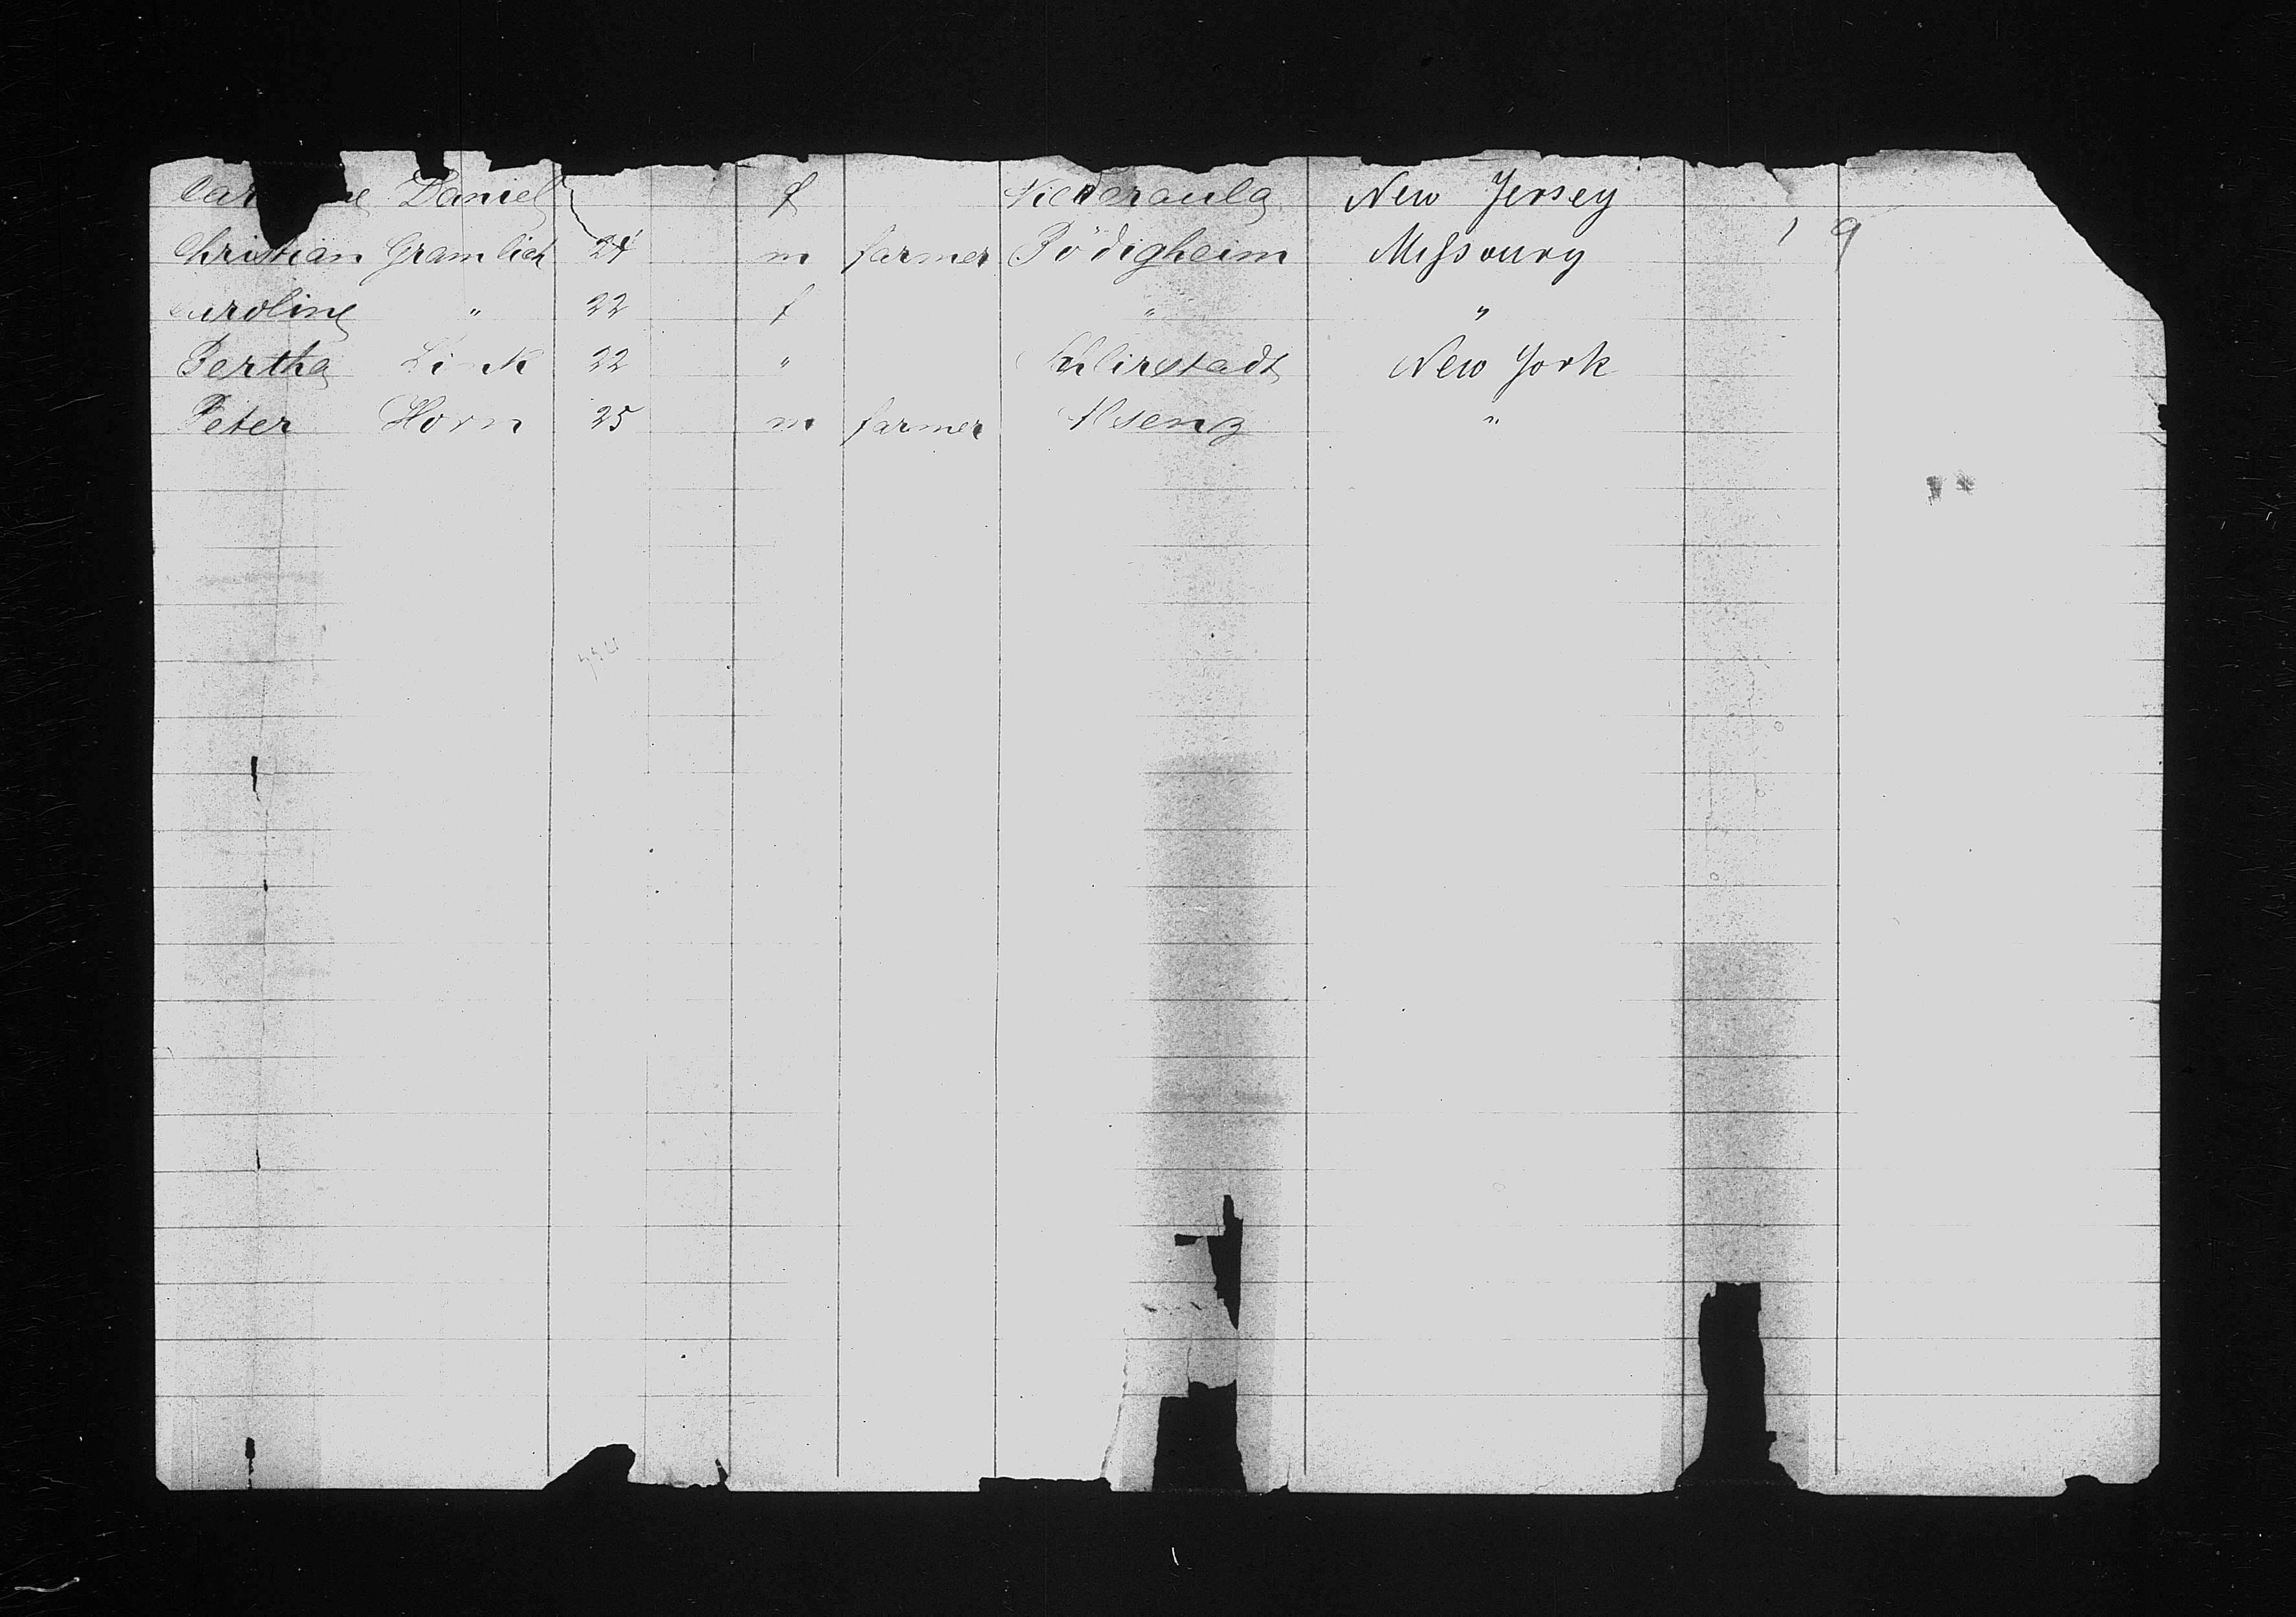 Daniel f Niederaula New Jersey
Christian Gramlich 24 m farmer Bödigheim Missoury 9
Caroline " 22 f " "
Bertha Link 22 " Schlirstadt New York
Peter Horn 25 m farmer Alsenz "